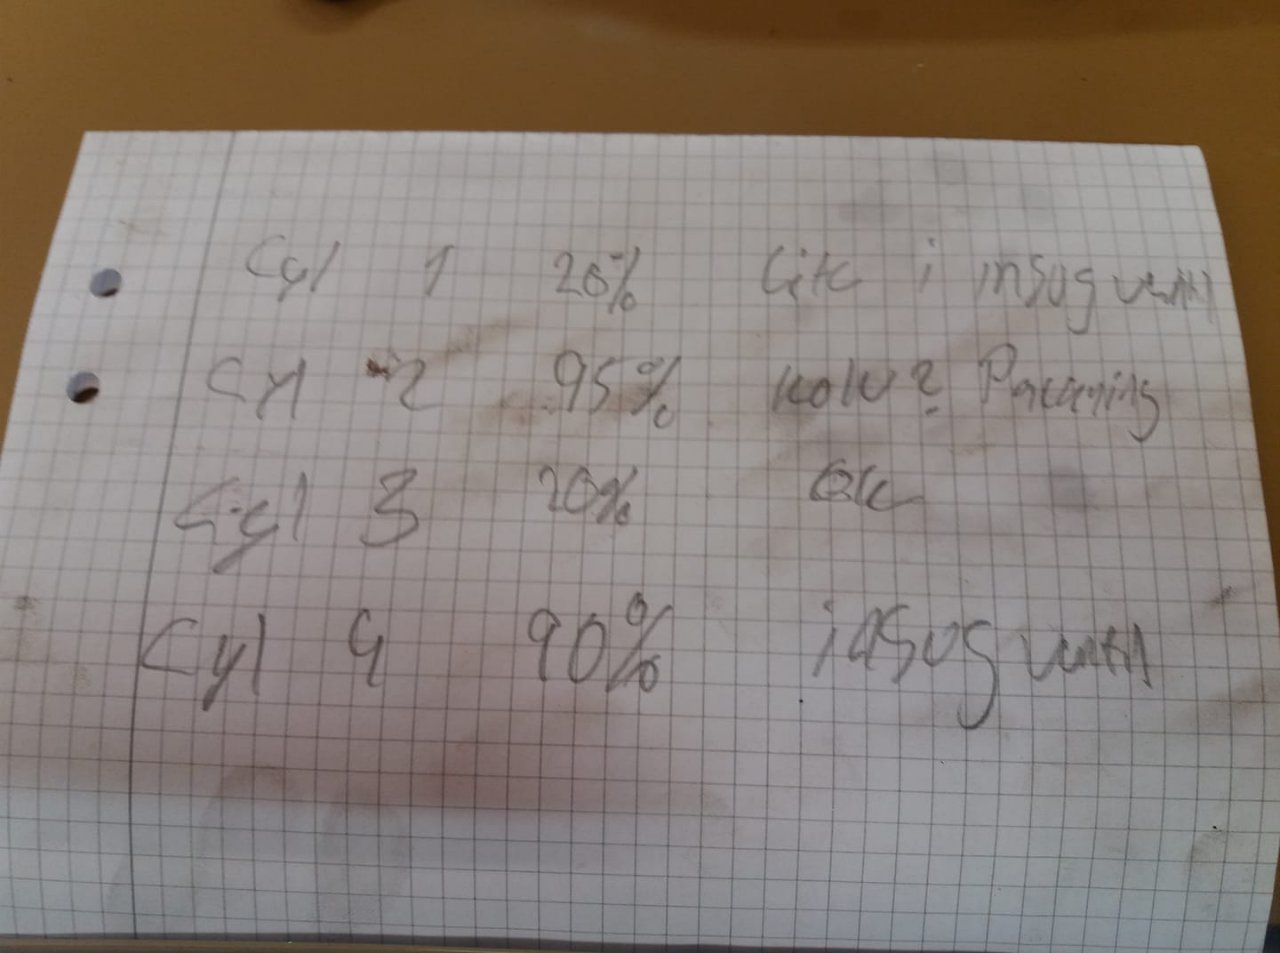 Cyl 1 20% Lite i insug ventil
Cyl 2 95% kolv? Packning
Cyl 3 20% Ok
Cyl 4 90% insug ventil